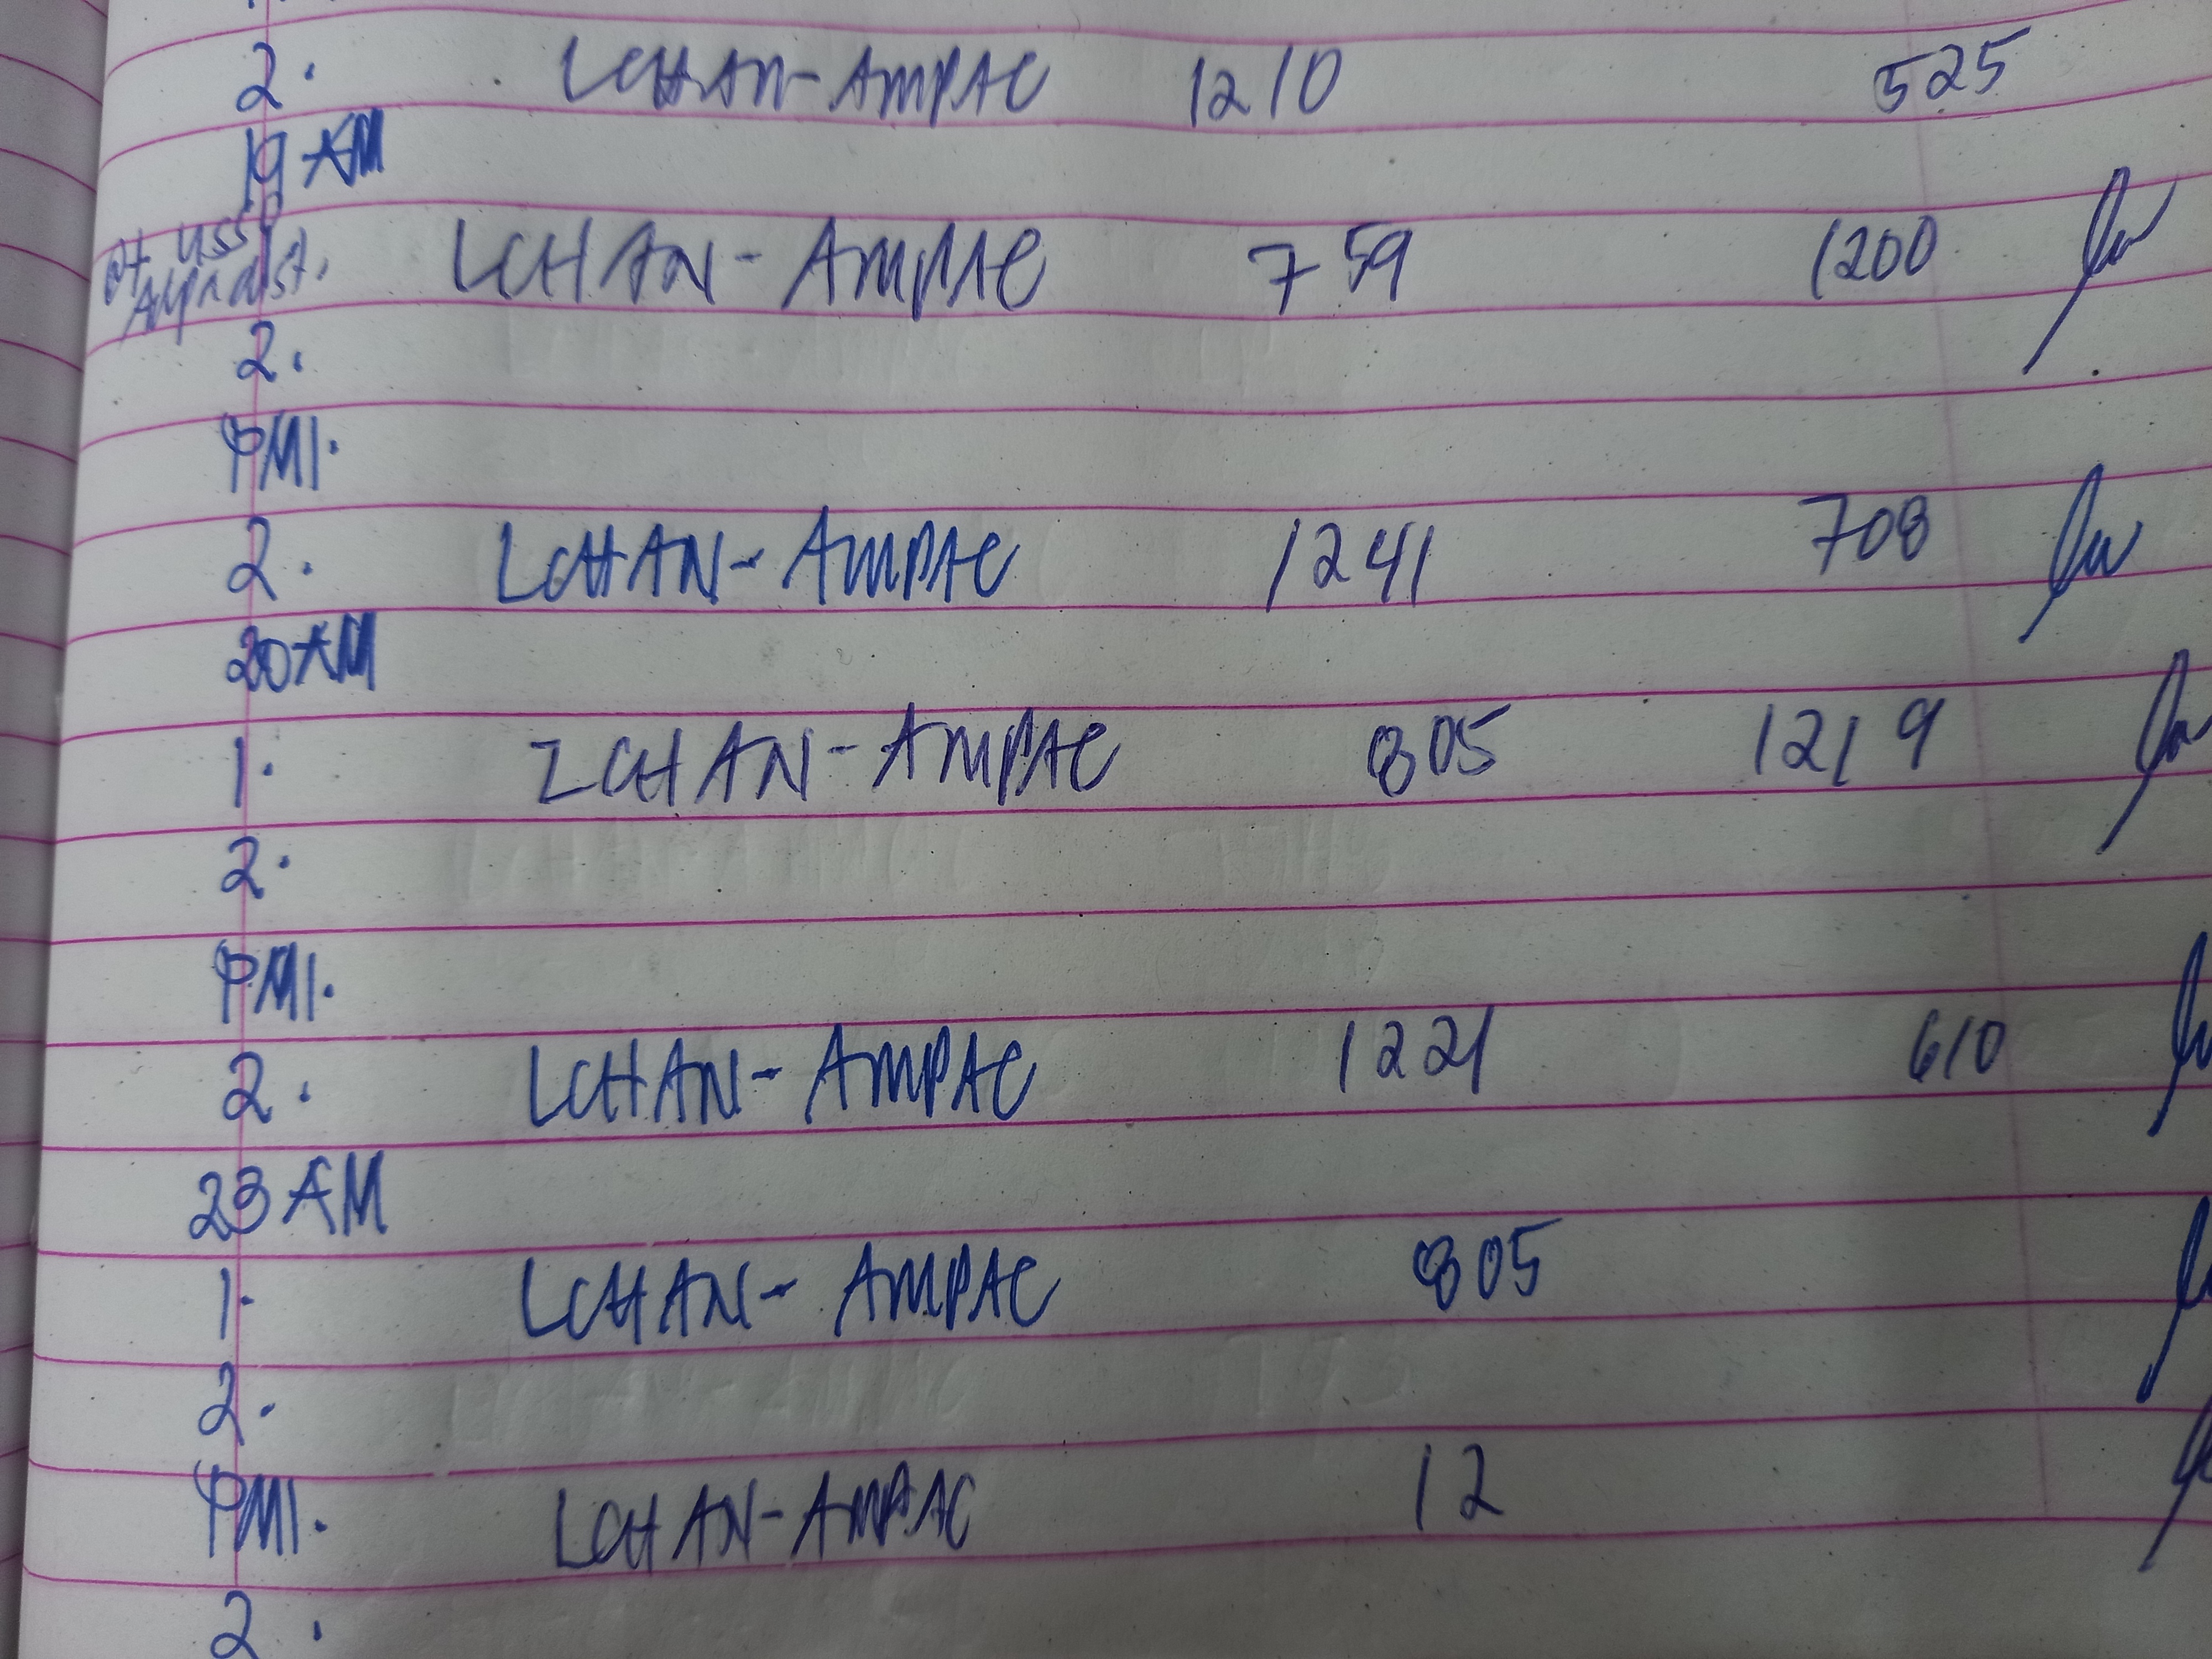 2. LCHAN-AMPAC 1210 525
19 AM
at USSC
LCHAN-AMPAC 759 1200
2.
PM1.
2. LCHAN-AMPAC 1241 708
20 AM
1. LCHAN-AMPAC 805 1219
2.
PM1.
2. LCHAN-AMPAC 1221 610
23 AM
1. LCHAN-AMPAC 805
2.
PM1. LCHAN-AMPAC 12
2.